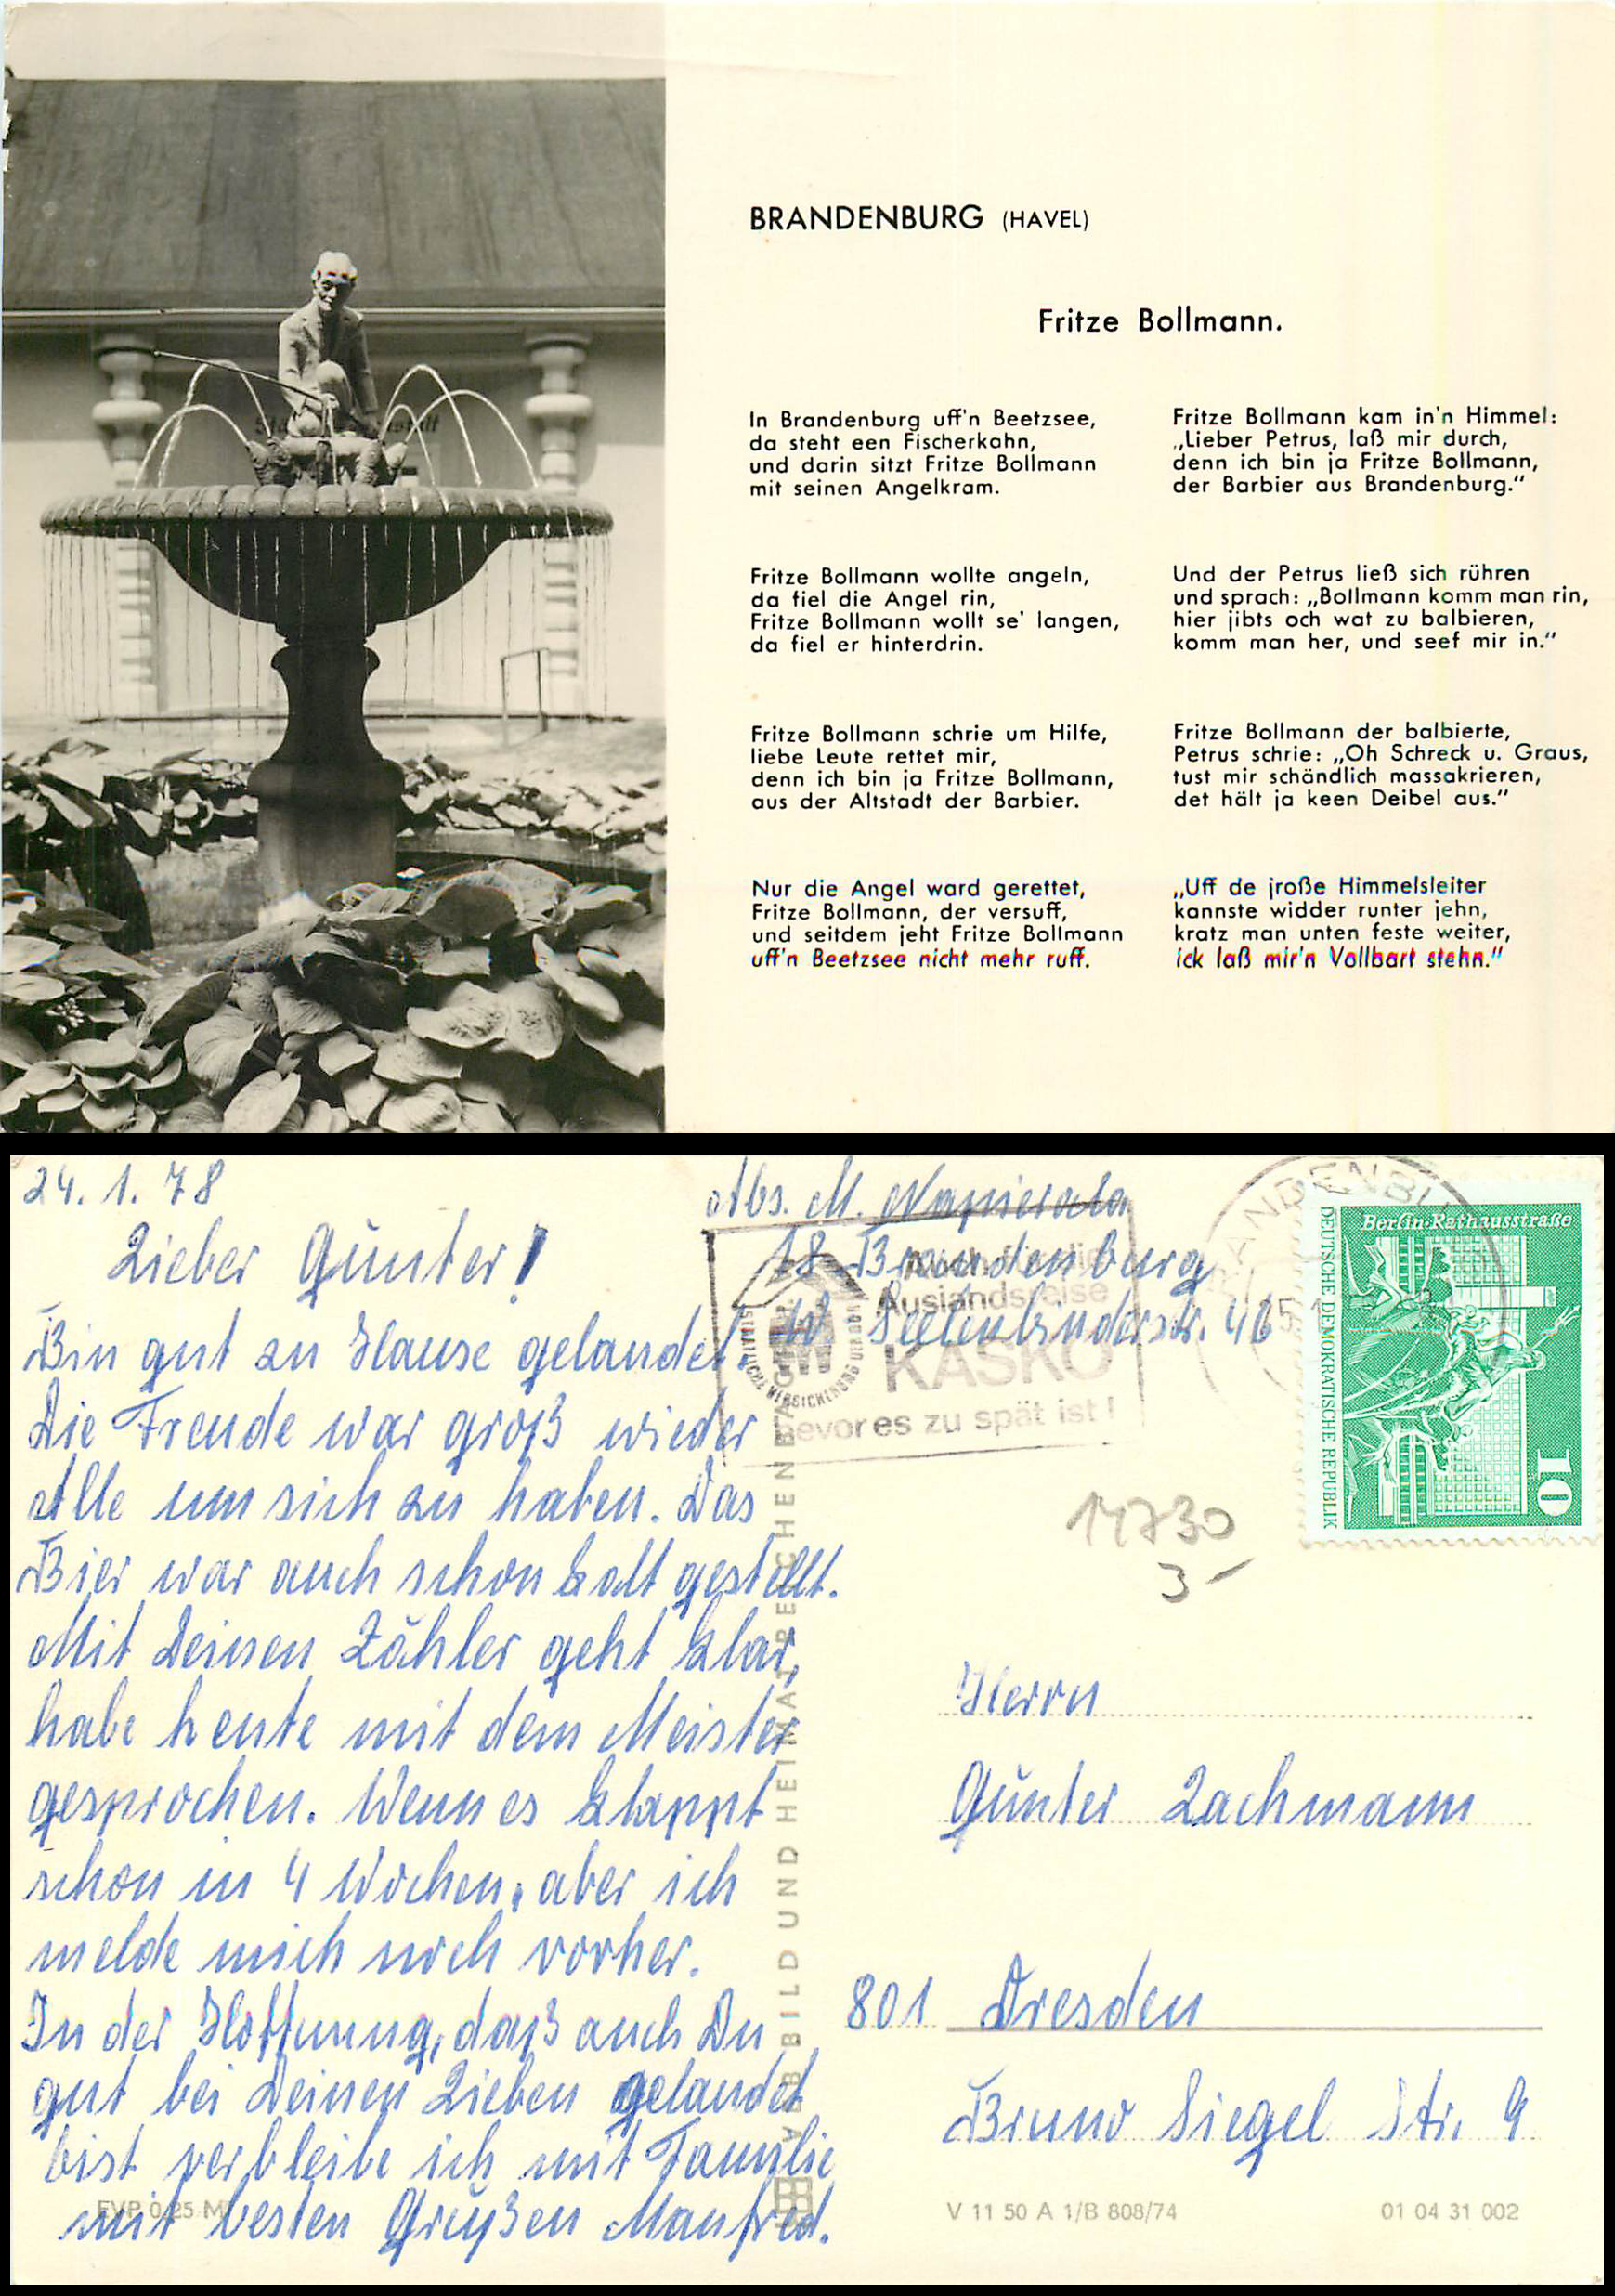 BRANDENBURG (HAVEL)
Fritze Bollmann.
In Brandenburg uff'n Beetzsee,
da steht een Fischerkahn,
und darin sitzt Fritze Bollmann
mit seinen Angelkram.
Fritze Bollmann wollte angeln,
da fiel die Angel rin,
Fritze Bollmann wollt se' langen,
da fiel er hinterdrin.
Fritze Bollmann schrie um Hilfe,
liebe Leute rettet mir,
denn ich bin ja Fritze Bollmann,
aus der Altstadt der Barbier.
Nur die Angel ward gerettet,
Fritze Bollmann, der versuff,
und seitdem jeht Fritze Bollmann
uff'n Beetzsee nicht mehr ruff.
Fritze Bollmann kam in'n Himmel:
„Lieber Petrus, laß mir durch,
denn ich bin ja Fritze Bollmann,
der Barbier aus Brandenburg."
Und der Petrus ließ sich rühren
und sprach: „Bollmann komm man rin,
hier jibts och wat zu balbieren,
komm man her, und seef mir in."
Fritze Bollmann der balbierte,
Petrus schrie: „Oh Schreck u. Graus,
tust mir schändlich massakrieren,
det hält ja keen Deibel aus."
„Uff de jroße Himmelsleiter
kannste widder runter jehn,
kratz man unten feste weiter,
ick laß mir'n Vollbart stehn."
24. 1. 78
Lieber Günter!
Bin gut zu Hause gelandet.
Die Freude war groß wieder
Alle um sich zu haben. Das
Bier war auch schon kalt gestellt.
Mit Deinen Zähler geht klar,
habe heute mit dem Meister
gesprochen. Wenn es klappt
schon in 4 Wochen, aber ich
melde mich noch vorher.
In der Hoffnung, daß auch Du
gut bei Deinen Lieben gelandet
bist verbleibe ich mit Familie
mit besten Grüßen Manfred.
EVP 0,25 M
Abs. M. Napierala
18 Brandenburg
W. Seelenbinderstr. 46
Auslandsreise
KASKO
bevor es zu spät ist!
STAATLICHE VERSICHERUNG
BRANDENBU
Berlin-Rathausstraße
DEUTSCHE DEMOKRATISCHE REPUBLIK
10
14730
3-
VEB BILD UND HEIMAT REICHENBACH
Herrn
Günter Lachmann
801 Dresden
Bruno Siegel Str. 9
V 11 50 A 1/B 808/74
01 04 31 002